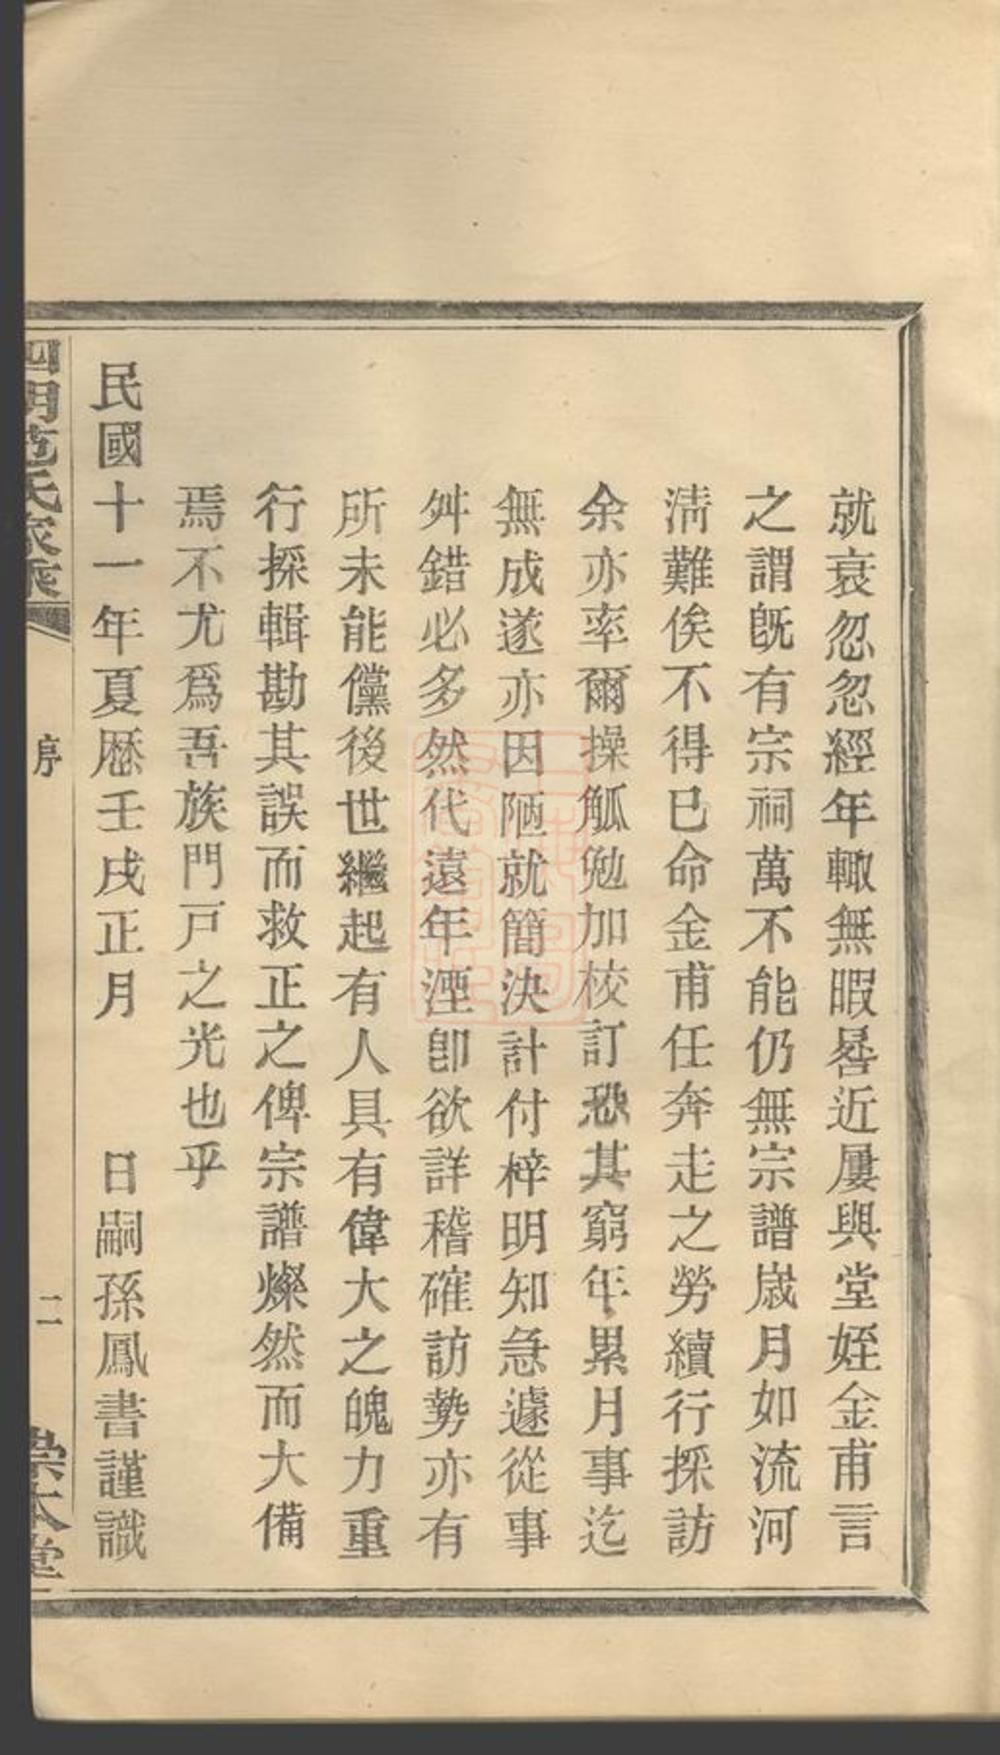 就衰忽忽經年轍無暇晷近屢與堂姪金甫言
之謂旣有宗祠萬不能仍無宗譜歲月如流河
淸難俟不得已命金甫任奔走之勞續行採訪
余亦率爾操觚勉加校訂恐其窮年累月事迄
無成遂亦因陋就簡決計付梓明知急遽從事
舛錯必多然代遠年湮卽欲詳稽確訪勢亦有
所未能儻後世繼起有人具有偉大之魄力重
行採輯勘其誤而救正之俾宗譜燦然而大備
焉不尤爲吾族門戸之光也乎
民國十一年夏歴壬戌正月　　日嗣孫鳳書謹識
四明范氏家乘　序　二　崇本堂